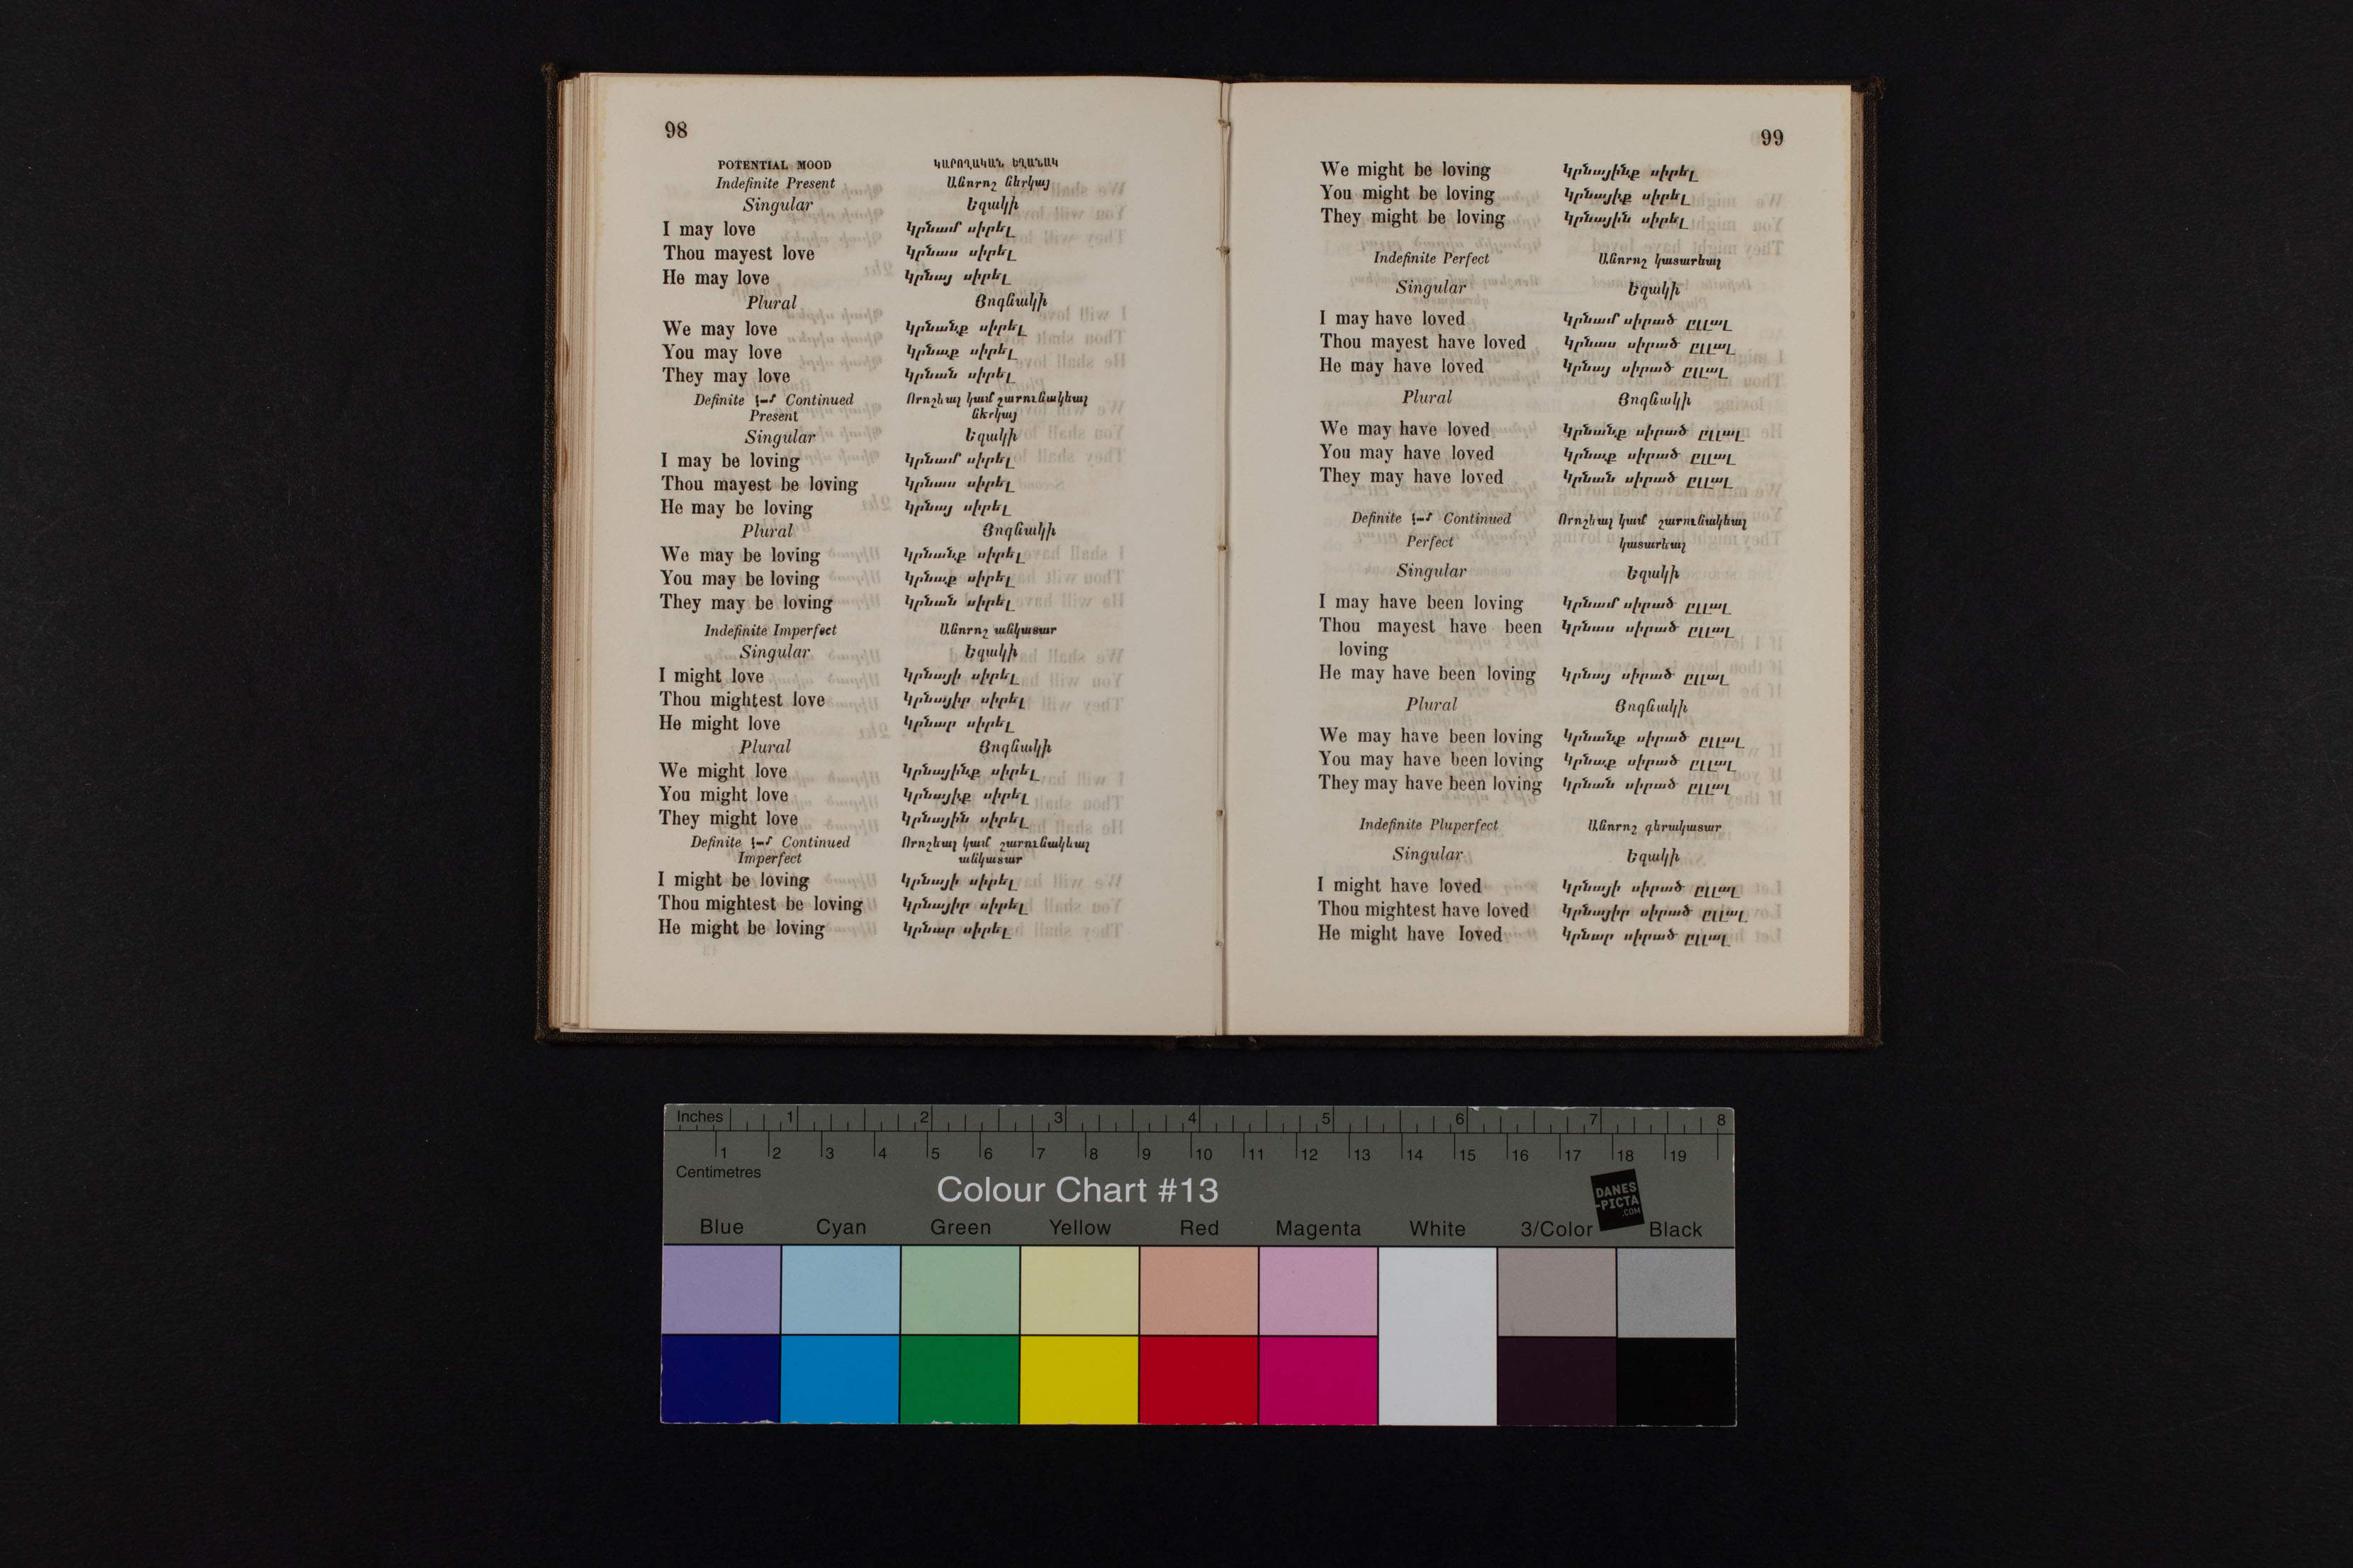 98
POTENTIAL MOOD ԿԱՐՈՂԱԿԱՆ ԵՂԱՆԱԿ
Indefinite Present Անորոշ ներկայ
Singular Եզակի
I may love Կրնամ սիրել
Thou mayest love Կրնաս սիրել
He may love Կրնայ սիրել
Plural Յոգնակի
We may love Կրնանք սիրել
You may love Կրնաք սիրել
They may love Կրնան սիրել
Definite կամ Continued Որոշեալ կամ շարունակեալ
Present ներկայ
Singular Եզակի
I may be loving Կրնամ սիրել
Thou mayest be loving Կրնաս սիրել
He may be loving Կրնայ սիրել
Plural Յոգնակի
We may be loving Կրնանք սիրել
You may be loving Կրնաք սիրել
They may be loving Կրնան սիրել
Indefinite Imperfect Անորոշ անկատար
Singular Եզակի
I might love Կրնայի սիրել
Thou mightest love Կրնայիր սիրել
He might love Կրնար սիրել
Plural Յոգնակի
We might love Կրնայինք սիրել
You might love Կրնայիք սիրել
They might love Կրնային սիրել
Definite կամ Continued Որոշեալ կամ շարունակեալ
Imperfect անկատար
I might be loving Կրնայի սիրել
Thou mightest be loving Կրնայիր սիրել
He might be loving Կրնար սիրել
99
We might be loving Կրնայինք սիրել
You might be loving Կրնայիք սիրել
They might be loving Կրնային սիրել
Indefinite Perfect Անորոշ կատարեալ
Singular Եզակի
I may have loved Կրնամ սիրած ըլլալ
Thou mayest have loved Կրնաս սիրած ըլլալ
He may have loved Կրնայ սիրած ըլլալ
Plural Յոգնակի
We may have loved Կրնանք սիրած ըլլալ
You may have loved Կրնաք սիրած ըլլալ
They may have loved Կրնան սիրած ըլլալ
Definite կամ Continued Որոշեալ կամ շարունակեալ
Perfect կատարեալ
Singular Եզակի
I may have been loving Կրնամ սիրած ըլլալ
Thou mayest have been Կրնաս սիրած ըլլալ
loving
He may have been loving Կրնայ սիրած ըլլալ
Plural Յոգնակի
We may have been loving Կրնանք սիրած ըլլալ
You may have been loving Կրնաք սիրած ըլլալ
They may have been loving Կրնան սիրած ըլլալ
Indefinite Pluperfect Անորոշ գերակատար
Singular Եզակի
I might have loved Կրնայի սիրած ըլլալ
Thou mightest have loved Կրնայիր սիրած ըլլալ
He might have loved Կրնար սիրած ըլլալ
Inches 1 2 3 4 5 6 7 8
1 2 3 4 5 6 7 8 9 10 11 12 13 14 15 16 17 18 19
Centimetres
Colour Chart #13
DANES
-PICTA
.COM
Blue Cyan Green Yellow Red Magenta White 3/Color Black